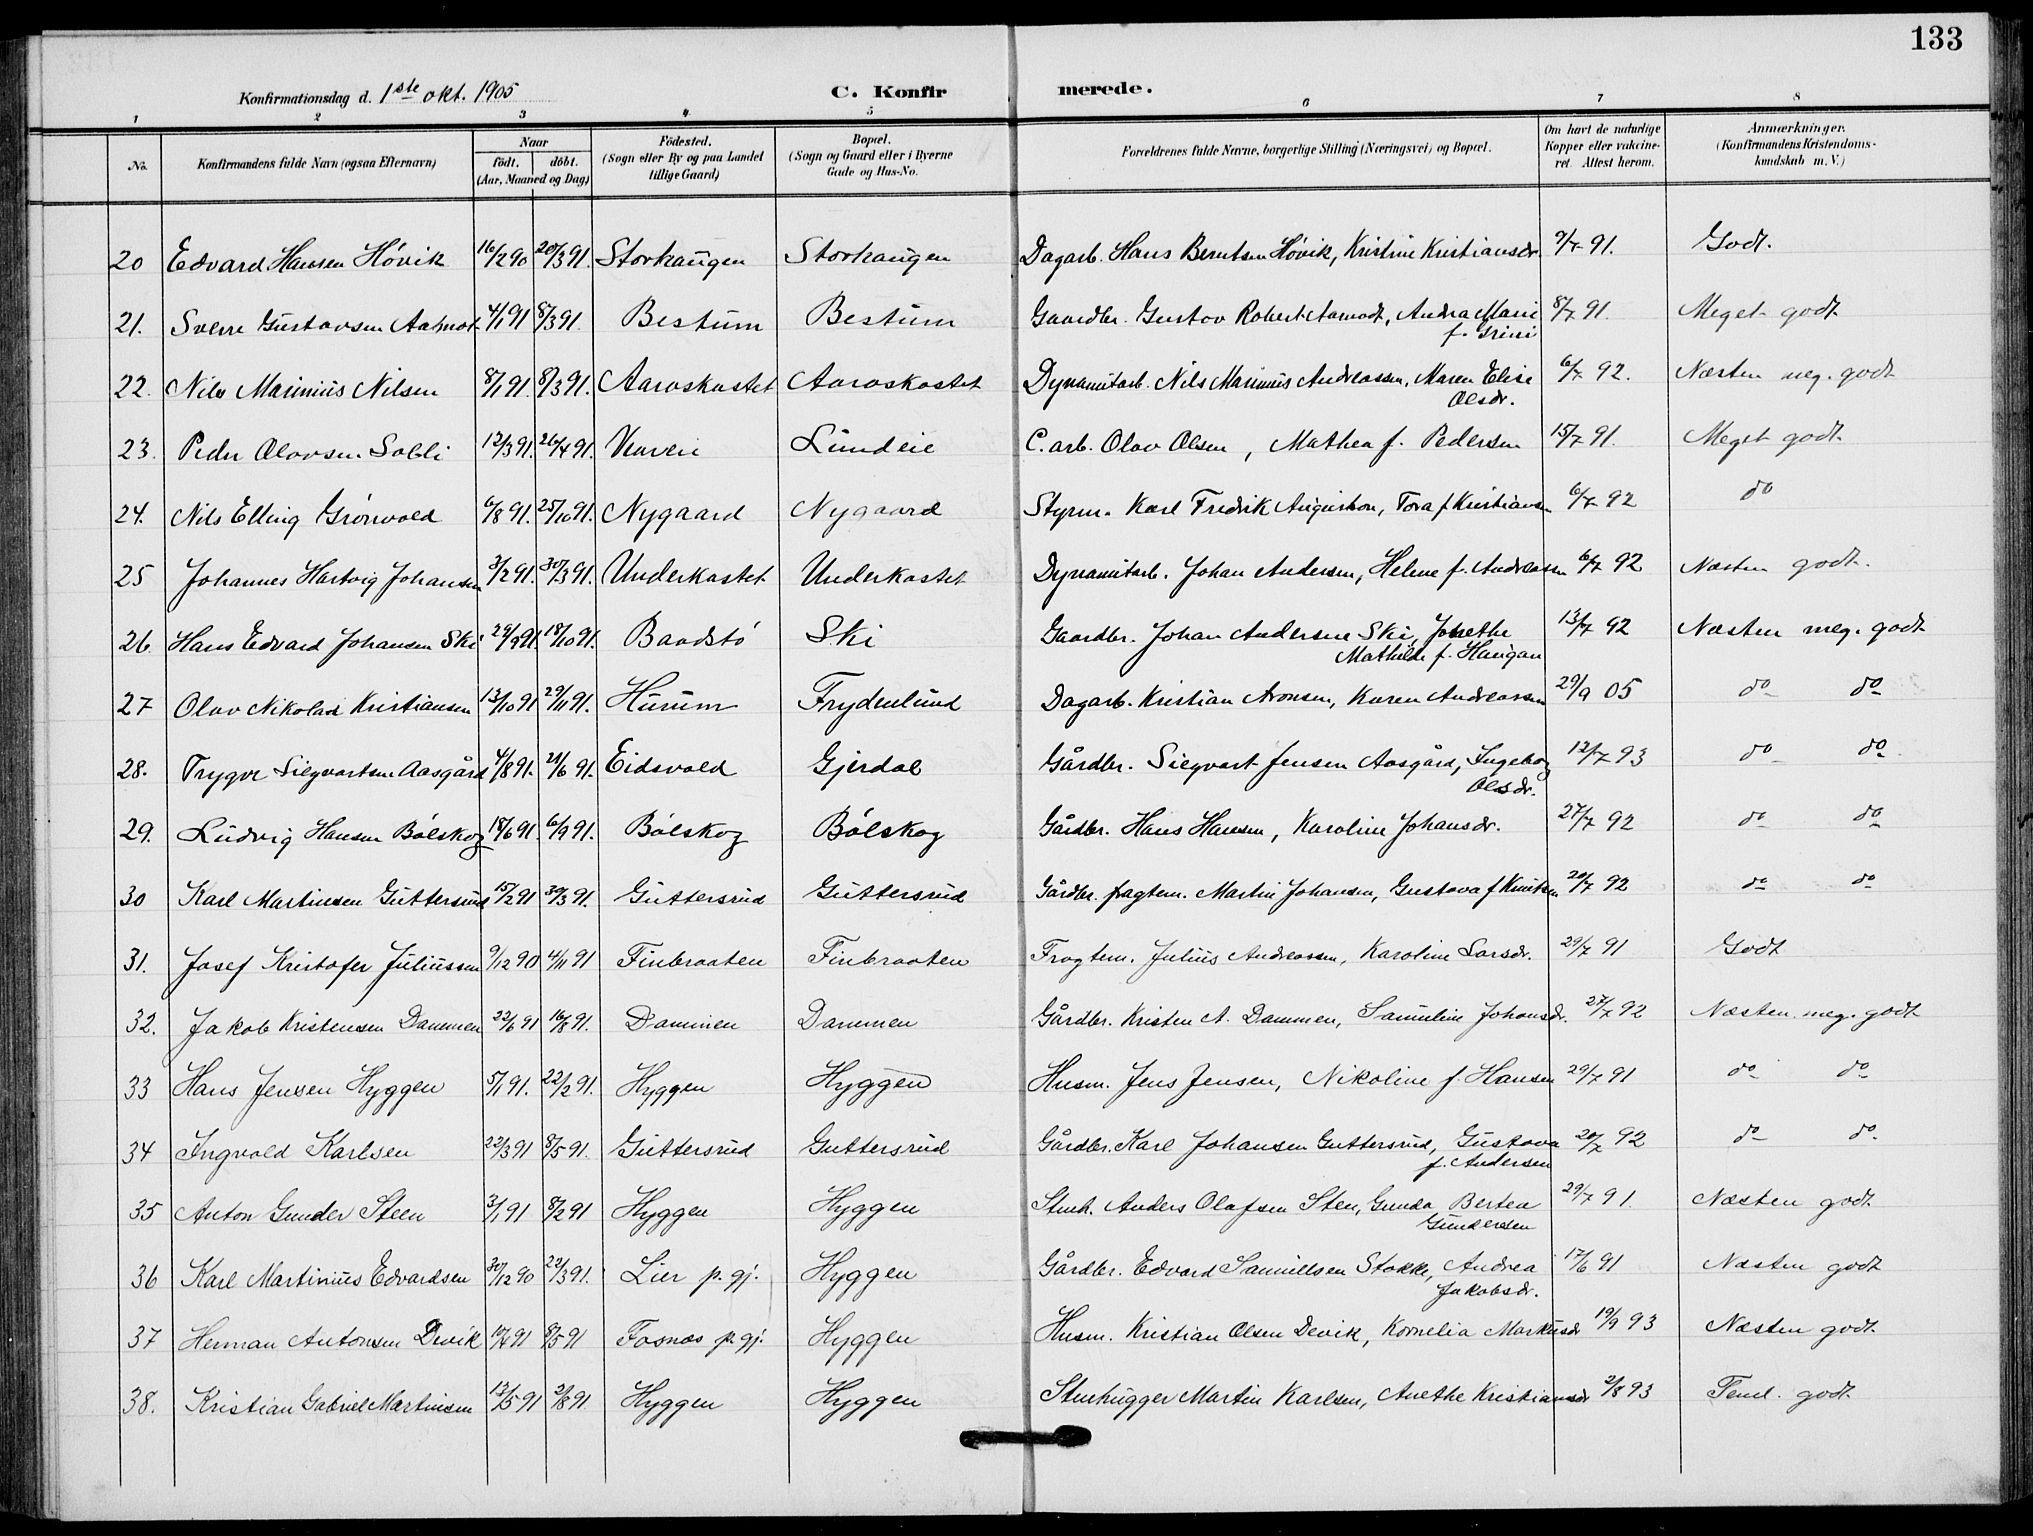 133
Konfirmationsdag d. 1ste okt. 1905 C. Konfirmerede.
1 2 3 4 5 6 7 8
No. Konfirmandens fulde Navn (ogsaa Efternavn) Naar födt. döbt. (Aar, Maaned og Dag) Födested. (Sogn eller By og paa Landet tillige Gaard) Bopæl. (Sogn og Gaard eller i Byerne Gade og Hus-No. Forældrenes fulde Navne, borgerlige Stilling (Næringsvei) og Bopæl. Om havt de naturlige Kopper eller vakcineret. Attest herom. Anmærkninger. (Konfirmandens Kristendomskundskab m. V.)
20 Edvard Hansen Hövik 16/2 90 20/3 91. Storhaugen Storhaugen Dagarb. Hans Berntsen Hövik, Kristine Kristiansdr. 9/7 91. Godt.
21. Sverre Gustavsen Aamot 4/1 91 8/3 91. Bestum Bestum Gaardbr. Gustav Robert Aamodt, Andrea Marie 8/7 91. Meget godt
f. Grini
22. Nils Marinius Nilsen 8/1 91. 8/3 91. Aaroskastet Aaroskastet Dynamitarb. Nils Marinius Andreassen, Maren Elise 6/7 92. Næsten meg. godt
Olsdr.
23. Peder Olavsen Solli 12/3 91. 26/4 91. Lundeie C. arb. Olav Olsen, Mathea f. Pedersen 15/7 91. Meget godt.
24. Nils Elling Grönvold 6/8 91. 25/10 91. Nygaard Nygaard Styrm. Karl Fredrik Augustson, Tora f Kristiansen 6/7 92 do
25 Johannes Hartvig Johansen 3/2 91. 30/3 91. Underkastet Underkastet Dynamitarb. Johan Andersen, Helene f. Andreassen 6/7 92 Næsten godt.
26. Hans Edvard Johansen Ski 24/9 91. 18/10 91. Baadstö Ski Gaardbr. Johan Andersen Ski, Josethe 13/7 92 Næsten meg. godt
Mathilde f. Haugan
27 Olav Nikolai Kristiansen 13/10 91 29/11 91. Hurum Frydenlund Dagarb. Kristian Aronsen, Karen Andreassen 29/9 05 do do
28. Trygve Siegvartsen Aasgård 4/8 91. 21/6 91. Eidsvold Gjerdal Gårdbr. Siegvart Jensen Aasgård, Ingeborg 12/7 93 do do
Olsdr.
29. Ludvig Hansen Bölskog 18/6 91. 6/9 91. Bölskog Bölskog Gårdbr. Hans Hansen, Karoline Johansdr. 27/7 92 do do
30 Karl Martinsen Guttersrud 15/2 91 30/3 91. Guttersrud Guttersrud Gårdbr. fragtem. Martin Johansen, Gustava f Knutsen 20/7 92 do do
31. Josef Kristofer Juliussen 9/12 90 4/11 91 Finbraaten Finbraaten Fragtem. Julius Andreassen, Karoline Larsdr. 29/7 91 Godt
32. Jakob Kristensen Dammen 22/6 91 16/8 91. Dammen Dammen Gårdbr. Kristen A. Dammen, Samuline Johansdr. 27/7 92 Næsten meg. godt
33 Hans Jensen Hyggen 5/1 91. 22/2 91. Hyggen Hyggen Husm. Jens Jensen, Nikoline f. Hansen 29/7 91 do do
34 Ingvald Karlsen 22/3 91 8/5 91. Guttersrud Guttersrud Gårdbr. Karl Johansen Guttersrud, Gustava 20/7 92 do do.
f. Andersen
35 Anton Gunder Steen 3/1 91 8/2 91 Hyggen Hyggen Stenh. Anders Olafsen Sten, Gunda Bertea 29/7 91. Næsten godt
Gundersen
36 Karl Martinius Edvardsen 30/12 90 22/3 91. Lier p. gj. Hyggen Gårdbr. Edvard Samuelsen Stokke, Andrea 17/6 91 Næsten godt
Jakobsdr.
37 Herman Antonsen Devik 10/4 91 8/5 91 Fosnæs p. gj. Hyggen Husm. Kristian Olsen Devik, Kornelia Markusdr 19/9 93 Næsten godt
38. Kristian Gabriel Martinsen 13/5 91 2/8 91. Hyggen Hyggen Stenhugger Martin Karlsen, Anethe Kristiansdr 2/8 93 Teml. godt